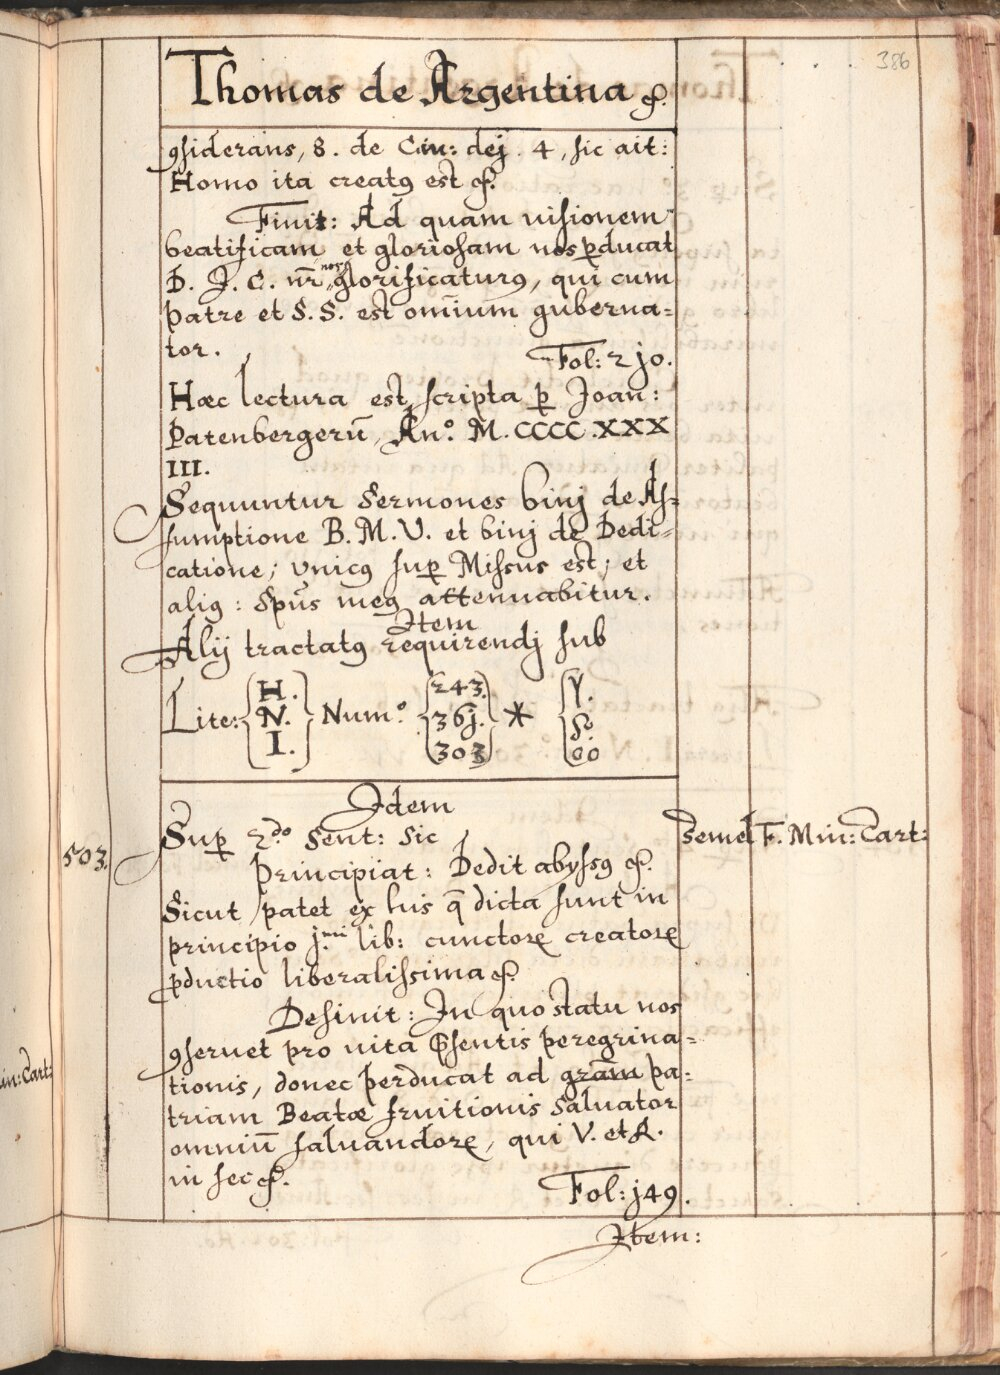 386
Thomas de Argentina &.
ꝯsiderans, 8. de Civ: dej. 4, sic ait:
Homo ita creatꝯ est &.
Finit: Ad quam visionem
beatificam et gloriosam nos ꝑducat
D. J. C. nr̄ nos glorificaturꝯ, qui cum
patre et S. S. est omīum guberna=
tor.
Fol: 2j0.
Hæc lectura est scripta ꝑ Joan:
Patenbergerū, Anº. M. CCCC. XXX
III.
Sequuntur Sermones binj de As=
sumptione B. M. V. et binj de Dedi=
catione; vnicꝯ suꝑ Missus est; et
aliꝯ: Spūs meꝯ attenuabitur.
Item
Alij tractatꝯ requirendj sub
Lite: { H. } Num.º { 243. } * { Y.
N. 36j.
I. 303
Idem
503.
Suꝑ 2.do Sent: Sic
semel F. Min: Cart:
Principiat: Dedit abyssꝯ &.
Sicut patet ex his q̄ dicta sunt in
principio j.mi lib: cunctoꝝ creatoꝝ
ꝓductio liberalissima &.
Desinit: In quo statu nos
ꝯseruet pro vita p̄sentis peregrina=
tionis, donec perducat ad grām pa=
triam Beatæ fruitionis Saluator
omniū saluandoꝝ, qui V. et R.
in sec &.
Fol: j49.
in: Cart:
Item: